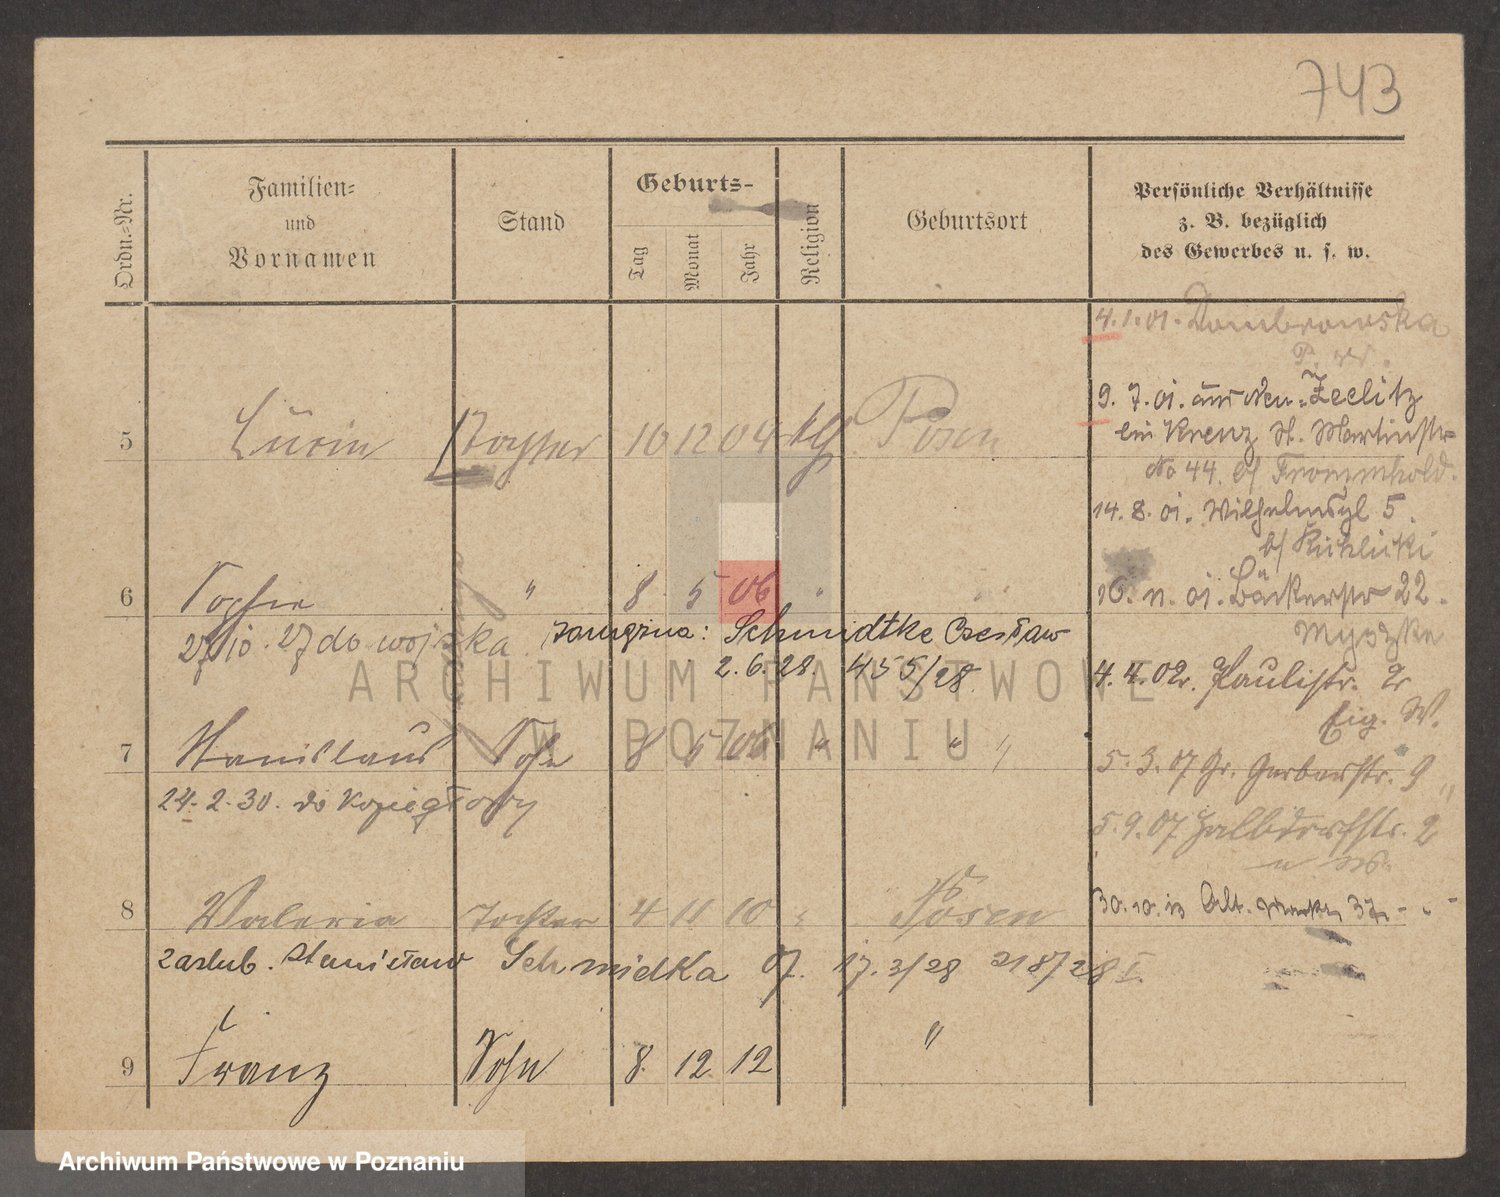 743
Ordn.-Nr.
Familien-
und
Vornamen
Stand
Geburts-
Tag
Monat
Jahr
Religion
Geburtsort
Persönliche Verhältnisse
z. B. bezüglich
des Gewerbes u. s. w.
4.1.01. Dombrowska
9. 7. 01. Zeelitz
Krenz St. Martinstr
No 44. b/ Frommhold.
14. 8. 01. Wilhelmspl 5.
b/
5 Tochter 10 12 04 Posen
16. 11. 01. Bäckerstr 22.
6 Sophie " 8 5 06 "
27/10. 27 do wojska. Schmidtke Czesław
2. 6. 28. 455/28.
4. 4. 02. Paulistr. 2
Eig. W.
7 Stanislaus Sohn 8 5 06 " " "
5. 3. 07 Gr. Gerberstr. 9 "
24. 2. 30. do Koziegłowy
5. 9. 07 Halbdorfstr. 2
8 Valeria Tochter 4 11 10 Posen
30. 10. 13 Alt. Markt 37
zaślub. Stanisław Schmidka 07. 17. 3/28 218/28 I.
9 Franz Sohn 8. 12 12 "
ARCHIWUM PAŃSTWOWE
W POZNANIU
Archiwum Państwowe w Poznaniu